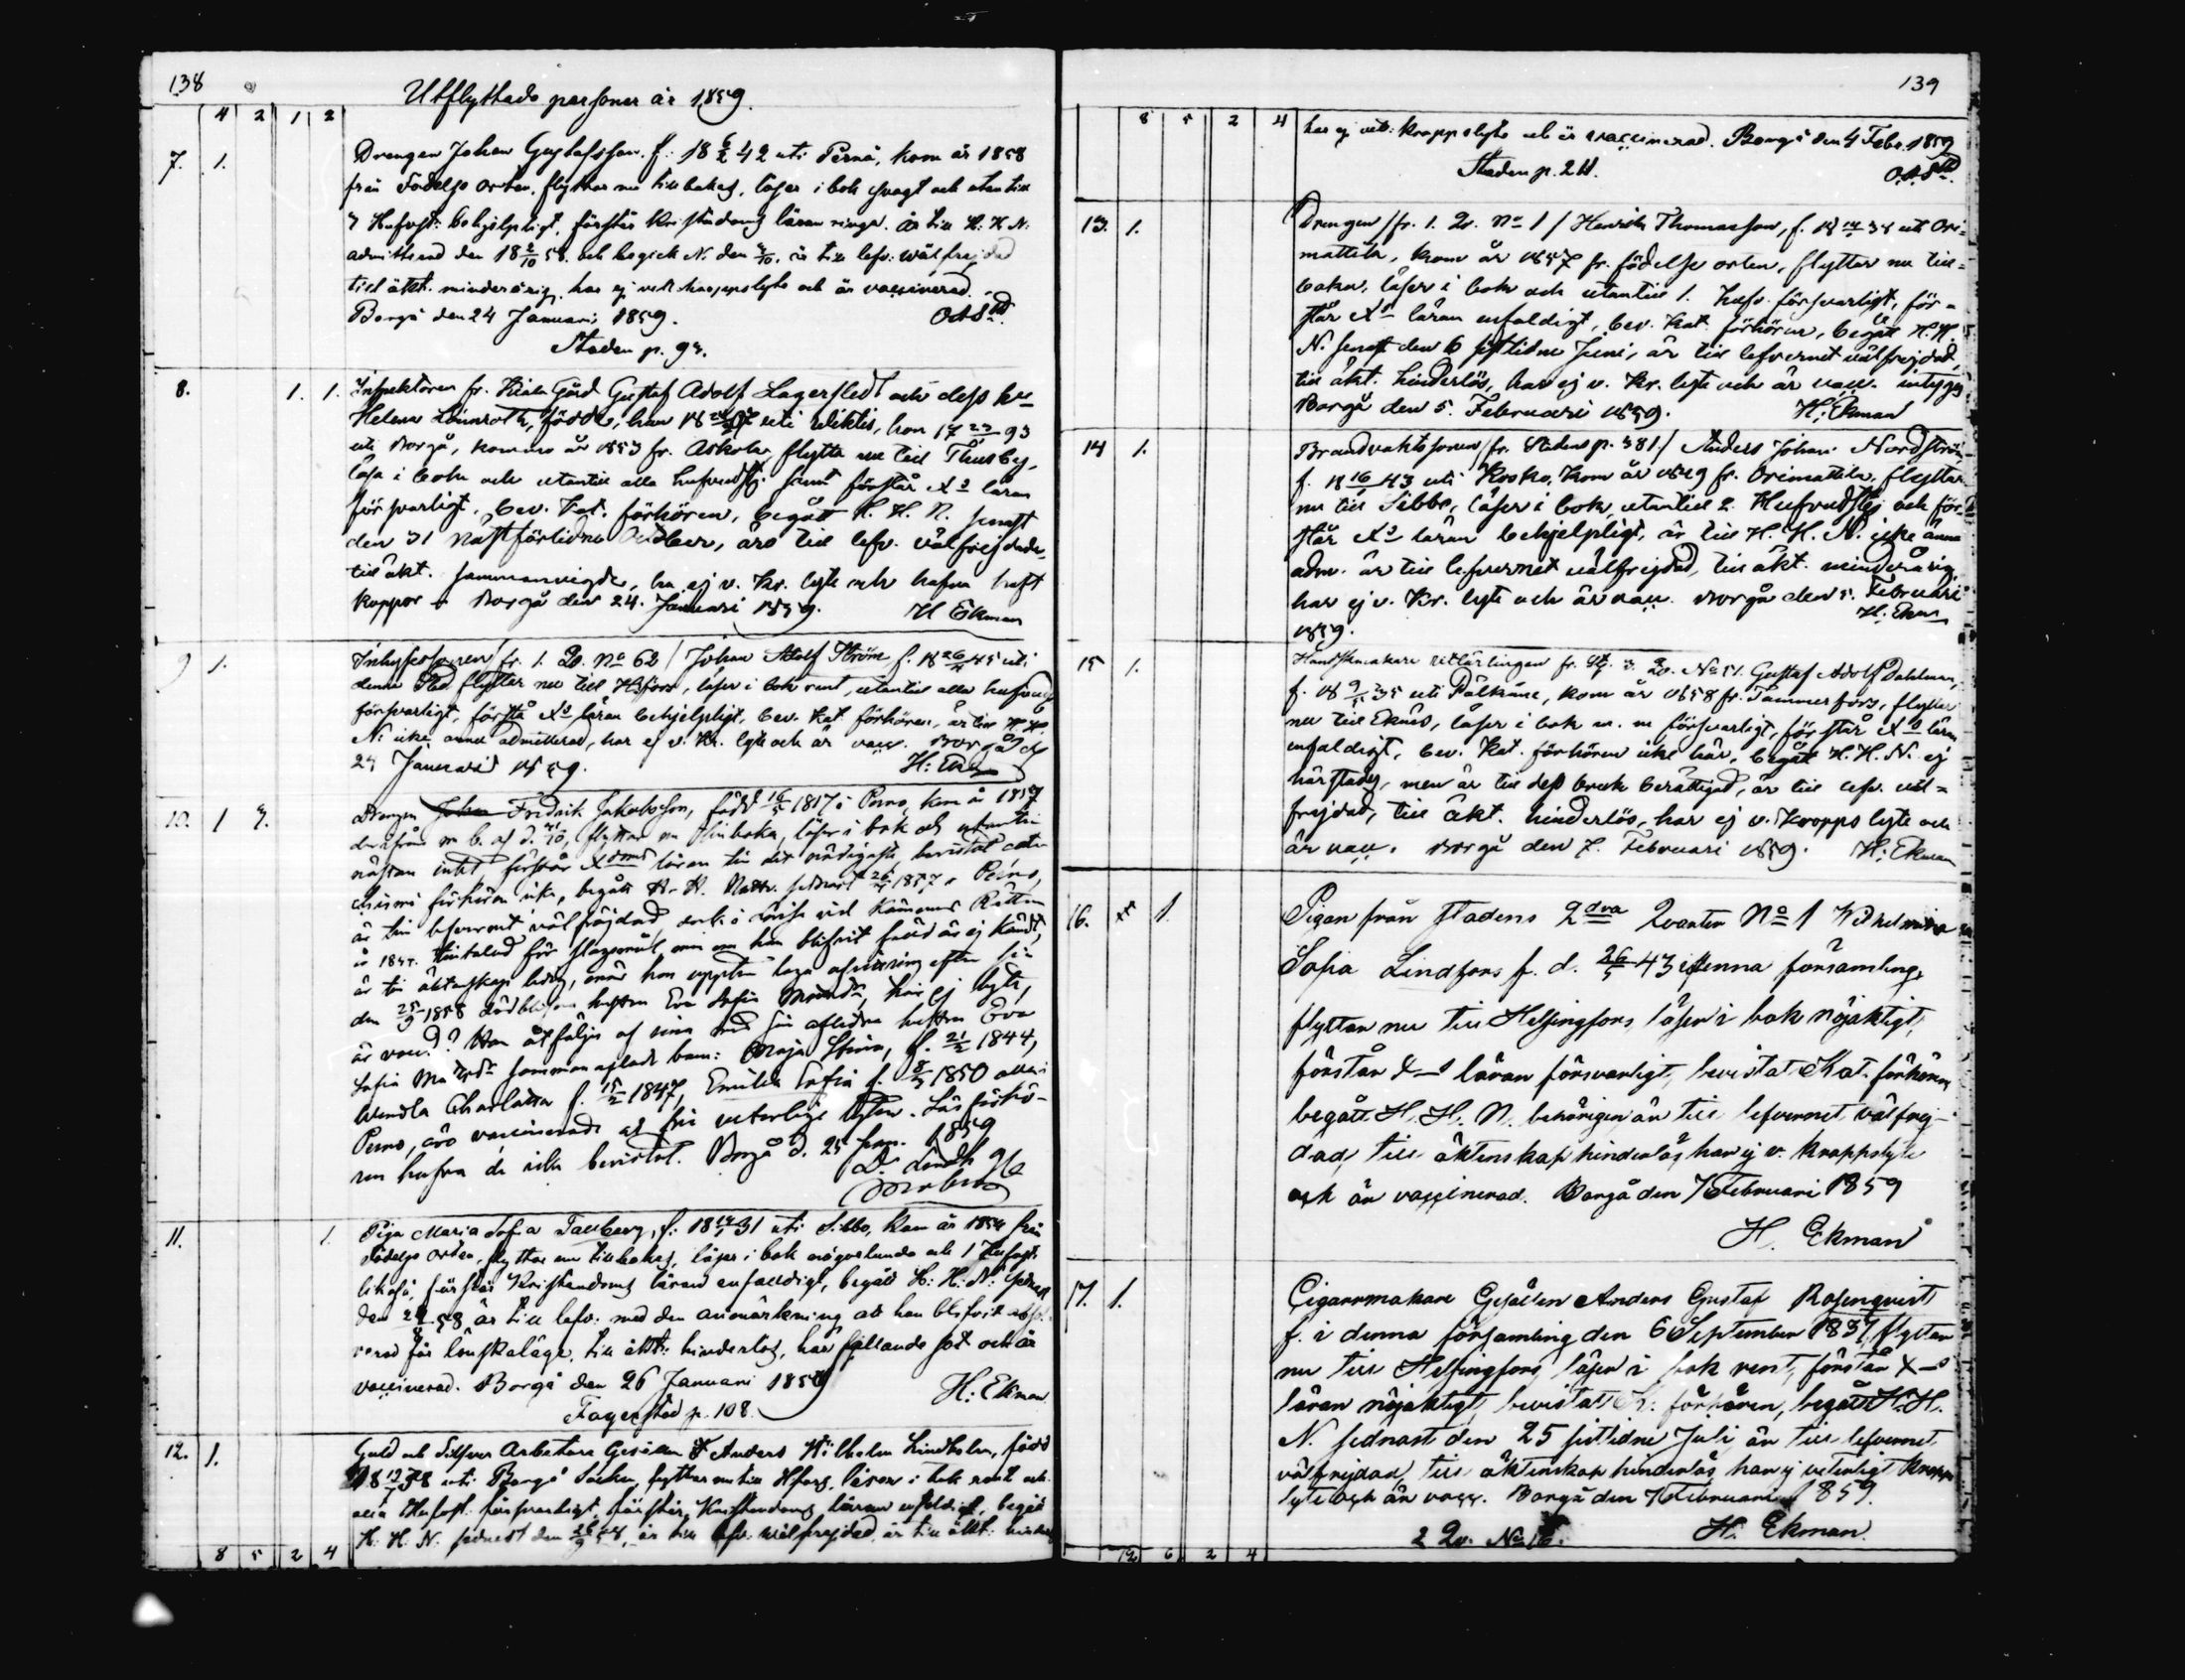 138
Utflyttade personer år 1859.
4 2 1 2
7. 1.
Drengen Johan Gustafsson f: 18 6/2 42 uti Pernå, kom år 1858
från Födelse orten, flyttar nu tillbakas, läser i bok svagt och utantill
3 Hufvst: behjelpligt, förstår Kristendoms läran ringa. Är till H: H. N:
admitterad den 18 2/10 58. och begick N. den 3/10, är till lefv: wälfrejdad
till äkt. minderårig, har ej vett. kroppslyte och är vaccinerad.
Borgå den 24 Januari 1859.
Staden p. 93.
8. 1. 1.
Inspektoren fr. Kiala Gård Gustaf Adolf Lagerstedt och dess hu
Helena Lönnroth, födde, han 18 uti Wiktis, hon 17 23 93
uti Borgå, kommo år 1853 fr. Askola, flytta nu till Thusby,
läsa i bok och utantill alla hufvudst. samt förstår Xs läran
försvarligt, bev. Kat. förhören, begått H. H. N. senast
den 31 nästförlidne October, äro till lefv. välfrejdade,
till äkt. sammanvigde, ha ej v. Kr. lyte och hafva haft
koppor. Borgå den 24. Januari 1859.
H Ekman
9 1.
Inhysessonen / fr. 1. Qv. No 62 / Johan Adolf Ström f. 18 26 45 uti
denna Stad flyttar nu till Hfors, läser i bok rent, utantill alla hufvud
försvarligt, förstå Xs läran behjelpligt, bev. Kat. förhören, är till H. H.
N. icke ännu admitterad, har ej v. Kr. lyte och är vacc. Borgå d
24 Januari 1859.
H: Ekman
10. 1 3.
Drengen Fredrik Jakobsson, född 16 1817 i Perno, kom år 1857
derifrån m b. af d. flyttar nu tillbaka, läser i bok och utantill
nästan intet, förstår Xdoms läran till det nödigaste, bevistat cate-
chismi förhören icke, begått H. H. Nattv. sednast 26 1857 i Perno,
är till lefvernet välfrejdad, och i vid Kämners Rätten
år 1844 tilltalad för slagsmål, men om han blifvit fälld är ej kändt,
är till äktenskap ledig, enär han uppter laga afvittring efter sin
den 25/9 1858 dödblifna hustru Eva Sofia har ej lyte,
är vacc.? Han åtföljes af sina med sin aflidna hustru Eva
Sofia sammanaflade barn: Maja Stina, f. 21/2 1844,
Wendla Charlotta f. 15/2 1847, Emilia Sofia f. 8/3 1850 alla i
Perno, äro vaccinerade och fria veterlige lyten. Läsförhö-
ren hafva de icke bevistat. Borgå d. 25 Jan. 1859
11. 1.
Piga Maria Sofia Tallberg, f: 18 31 uti Sibbo, kom år 1854 från
Födelse orten, flyttar nu tillbakas, läser i bok någorlunda och 1 Hufvst.
likaså, förstår Kristendoms läran enfaldigt, begått H: H: N: sednast
den 29/8 58, är till lefv: med den anmärkning att hon blifvit abso-
verad för lönskaläge, till äkt: hinderlös, har fallande sot och är
vaccinerad. Borgå den 26 Januari 1859
H: Ekman
Fagersta p. 108.
12. 1.
Guld och Silfver Arbetare Gesällen Anders Wilhelm Lindholm, född
18 38 uti Borgå Socken, flyttar nu till Hfors, läser i bok rent och
alla Hufvst: försvarligt, förstår Kristendoms läran enfaldigt, begått
H: H: N. sednast den 26/9 58, är till lefv: wälfrejdad, är till äkt: hinder
8 5 2 4
139
8 5 2 4
har ej vett: kroppslyte och är vaccinerad. Borgå den 4 Febr. 1859
Staden p. 211.
13. 1.
Drengen / fr. 1. Qv. No 1 / Henrik Thomasson, f. 18 uti Ori-
mattila, kom år 1857 fr. födelse orten, flyttar nu till-
baka, läser i bok och utantill 1. hufv. försvarligt, för-
står Xs läran enfaldigt, bev. Kat. förhören, begått H. H.
N. senast den 6 sistlidne Juni, är till lefvernet välfrejdad,
till äkt. hinderlös, har ej v. Kr. lyte och är vacc. intygas
Borgå den 5. Februari 1859.
H: Ekman
14 1.
Brandvaktssonen / fr. Staden p. 381 / Anders Johan Nordström,
f. 18 16 43 uti Kosko, kom år 1849 fr. Orimattila, flyttar
nu till Sibbo, läser i bok, utantill 2. Hufvudst. och för-
står Xs läran behjelpligt, är till H. H. N. icke ännu
adm. är till lefvernet välfrejdad, till äkt. minderårig,
har ej v. Kr. lyte och är vacc. Borgå den 5. Februari
1859.
H. Ekman
15 1.
Handskmakare lärlingen fr. 3. Qv. No 51. Gustaf Adolf Dahlman,
f. 18 9 35 uti Pälkäne, kom år 1858 fr. Tammerfors, flyttar
nu till Eknäs, läser i bok m. m försvarligt, förstår Xs läran
enfaldigt, bev. Kat. förhören icke här, begått H. H. N. ej
härstades, men är till dess bruk berättigad, är till lefv. väl-
frejdad, till äkt. hinderlös, har ej v. Kropps lyte och
är vacc. Borgå den 7. Februari 1859.
H: Ekman
16. 1.
Pigan från stadens 2dra Qvarter No 1 Wilhelmina
Sofia Lindfors f. d. 26/5 43 i denna församling,
flyttar nu till Helsingfors, läser i bok nöjaktigt,
förstår X-s läran försvarligt, bevistat Kat. förhören,
begått H. H. N. behörigen är till lefvernet välfrej-
dad, till äktenskap hinderlös, har ej v. kroppslyte
och är vaccinerad. Borgå den 7 Februari 1859
H. Ekman
17. 1.
Cigarrmakare Gesällen Anders Gustaf Rosenqvist
f. i denna församling den 6 September 1837, flyttar
nu till Helsingfors, läser i bok rent, förstår X-s
läran nöjaktigt, bevistat K. förhören, begått H. H.
N. sednast den 25 sistlidne Juli, är till lefvernet
välfrejdad, till äktenskap hinderlös, har ej veterligt kropps
lyte och är vacc. Borgå den 7 Februari 1859.
2 Qv. No 16.
H. Ekman.
12 6 2 4